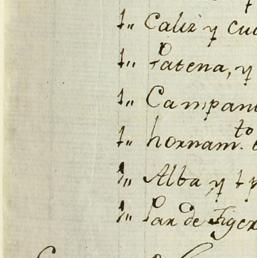 1,, Caliz y cu
1,, Patena, y
1,, Campani
1,, hornam.to
1,, Alba y
1,, Par de Tiger